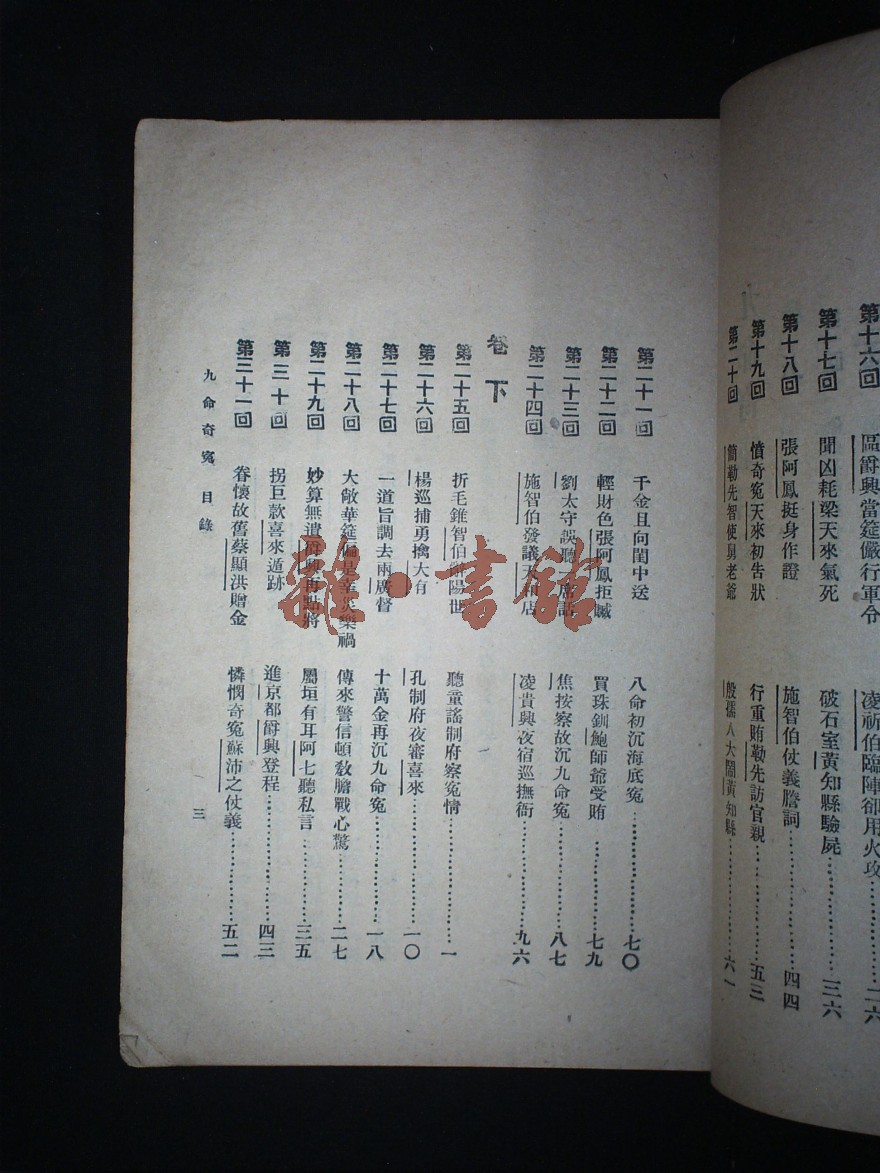 第十六回 區爵興當筵嚴行軍令 凌祈伯臨陣卻用火攻……二六
第十七回 聞凶耗梁天來氣死 破石室黃知縣驗屍……三六
第十八回 張阿鳳挺身作證 施智伯仗義謄詞……四四
第十九回 憤奇冤天來初告狀 行重賄勒先訪官親……五三
第二十回 簡勒先智使舅老爺 殷孺人大鬧黃知縣……六一
第二十一回 千金且向閨中送 八命初沉海底冤……七〇
第二十二回 輕財色張阿鳳拒贓 買珠釧鮑師爺受賄……七九
第二十三回 劉太守誤聽 焦按察故沉九命冤……八七
第二十四回 施智伯發議天 店 凌貴興夜宿巡撫衙……九六
卷下
第二十五回 折毛錐智伯辭陽世 聽童謠制府察冤情……一
第二十六回 楊巡捕勇擒大有 孔制府夜審喜來……一〇
第二十七回 一道旨調去兩廣督 十萬金再沉九命冤……一八
第二十八回 大敞華筵偏是幸災樂禍 傳來警信頓教膽戰心驚……二七
第二十九回 妙算無遺爵興再點將 屬垣有耳阿七聽私言……三五
第三十回 拐巨款喜來遁跡 進京都爵興登程……四三
第三十一回 眷懷故舊蔡顯洪贈金 憐憫奇冤蘇沛之仗義……五二
九命奇冤 目錄 三
雜·書館